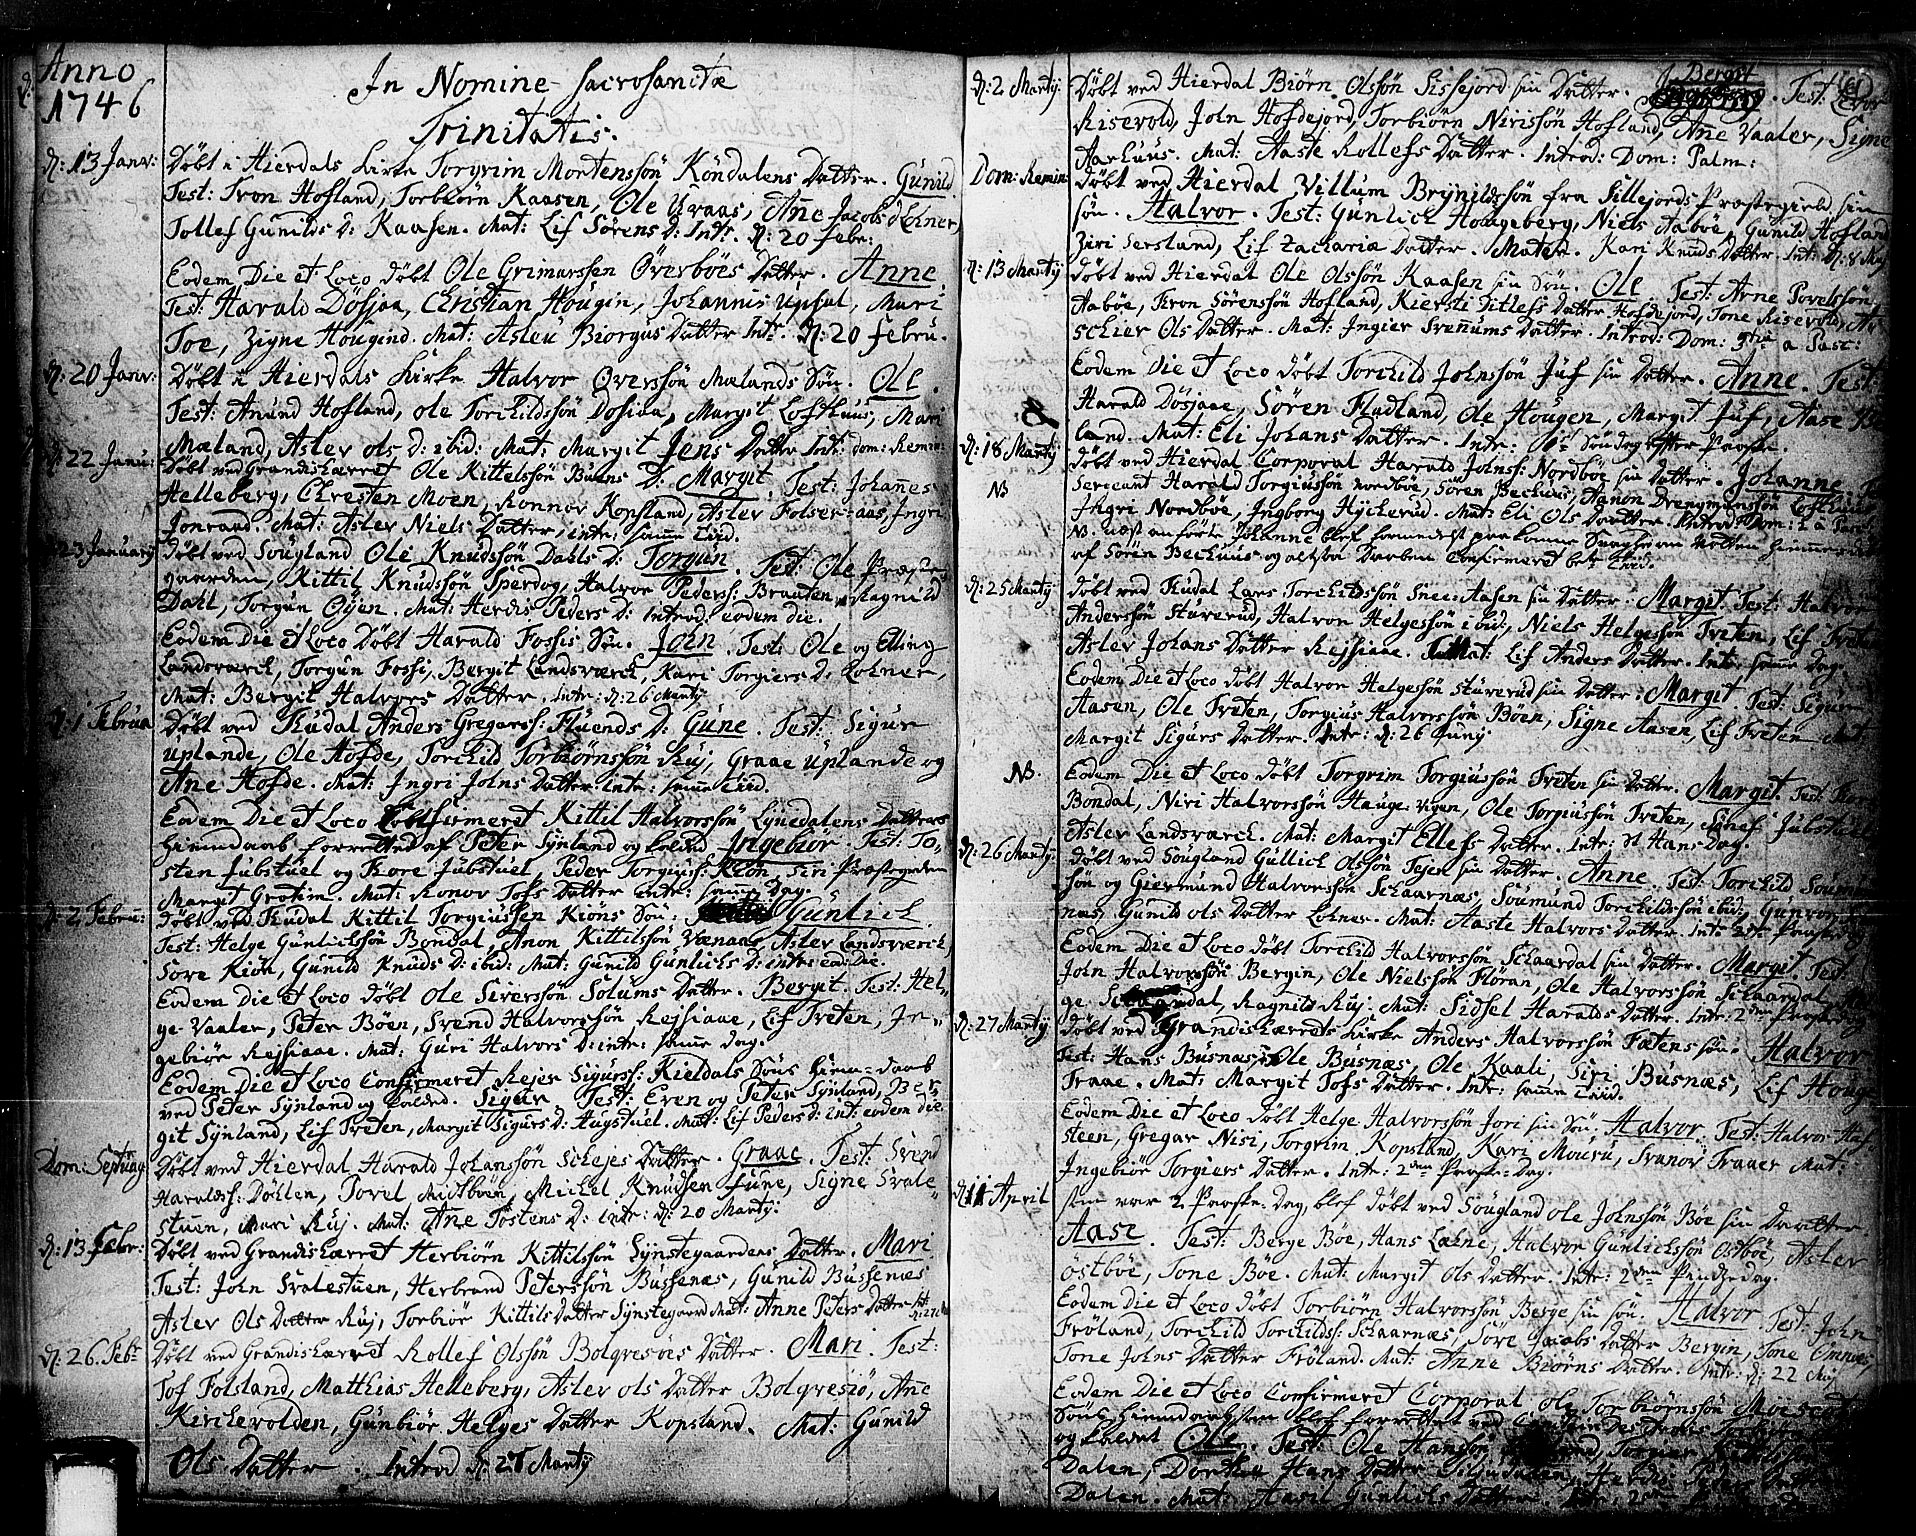 Anno
1746
In Nomine Sacrosanctæ
Trinitatis.
d: 13 Janv: Döbt i Hierdals Kirke Torgrim Mortensön Köndalens Datter. Gunild
Test: Tron Hofland, Torbiörn Kaasen, Ole Uraas, Añe Jacobs d:
Tollef Gunilds D: Kaasen. Mat: Lif Sörens D: Intr. d: 20 Febr:
Eodem Die et Loco döbt Ole Grimarssen Överböes Datter. Anne.
Test: Harald Dösjaa, Christian Hougin, Johannis Upsal, Mari
Toe, Zigne Hougind. Mat: Asleu Biorgus Datter Intr. d: 20 Febru.
d: 20 Janv: Döbt i Hierdals Kirke Halvor Overssön Mælands Sön. Ole.
Test: Anund Hofland, Ole Torchildssön Dosiaa, Margit Lofthuus, Mari
Mæland, Aslev Ols D: ibid: Mat: Margit Jens Datter Intr: dom: Remin:
d: 22 Janu: Döbt ved Grandisherret Ole Kittelssön Buens D: Margit. Test: Johañes
Helleberg, Christen Moen, Ronnov Kopsland, Aslev Folser-aas, Ingri
Jonraad. Mat: Aslev Niels Datter, intr: samme Tiid.
d: 23 January Döbt ved Sougland Ole Knudssön Dahls D: Torgun. Test: Ole Præste
gaarden, Kittil Knudssön Sperdog, Halvor Pederss: Brauten, Ragnild
Dahl, Torgun Öijen. Mat: Herdis Peders D: Introd: eodem die.
Eodem Die et Loco Döbt Harald Fossis Sön. John. Test: Ole og Elling
Landsværck, Torgun Fossi, Bergit Landsværck, Kari Torgiers D: Lohner,
Mat: Bergit Halvors Datter. Intr: d: 26 Marty
d: 1 Februa Döbt ved Hudal Anders Gregarss: Fluends D: Gune. Test: Sigur
Uplande, Ole Hofde, Torchild Torbiörnssön Ruj, Graae Uplande og
Ane Hofde. Mat: Ingri Johns Datter. Intr: samme Tiid.
Eodem Die et Loco Confirmeret Kittil Halvorssön Lynedalens Datters
Hiemdaab forrettet af Peter Synland og kaldet Ingebiör. Test: To-
sten Jubstuel og Tore Jubstuel, Peder Torgiuss: Kiön, Siri Præstegaarden
Margit Grotim. Mat: Ronov Tofs Datter Intr: samme Dag.
d: 2 Febru: Döbt ved Hudal Kittil Torgiussen Kiöns Sön: Gunlich.
Test: Helge Gunlichssön Bondal, Anon Kittilssön Vænaas, Aslev Landsværck,
Tore Kiön, Gunild Knuds D: ibid: Mat: Gunild Gunlichs D: intr: eod: Die.
Eodem Die et Loco döbt Ole Siverssön Solums Datter. Bergit. Test: Hel-
ge Vaaler, Peter Böen, Svend Halvorssön Rejsiaae, Lif Treten, In-
gebiör Rejsiaae. Mat: Guri Halvors D: intr: samme Dag.
Eodem Die et Loco Confirmeret Rejer Sigurss: Kieldals Söns Hiem-daab
ved Peter Synland og kalded. Sigur. Test: Even og Peter Synland, Ber-
git Synland, Lif Treten, Margit Sigurs D: Hugstuel. Mat: Lif Peders D: Int: eodem die
Dom: Septuag Döbt ved Hierdal Harald Johanssön Schejes Datter. Graae. Test: Svend
Haraldss: Döllen, Povel Midböen, Michel Knudsen Tune, Signe Svale-
stuen, Mari Ruj. Mat: Añe Tostens D: intr: d: 20 Marty:
d: 13 Febr: Döbt ved Grandisherret Herbiörn Kittilssön Synstegaardens Datter. Mari
Test: John Svalestuen, Herbrand Peterssön Bussenæs, Gunild Bussenæs
Aslev Ols Datter Ruj, Torbiör Kittils Datter Synstegaard Mat: Anne Peters Datter
d: 26. Febr Döbt ved Grandisherret Rollef Olssön Bolgresöes Datter. Mari. Test:
Tof Folsland, Matthias Helleberg, Aslev Ols Datter Bolgresiö, Añe
Kirchevolden, Gunbiör Helges Datter Kopsland. Mat: Gunild
Ols Datter. Introd d: 27 Marty
d: 2 Marty: Döbt ved Hierdal Biörn Olssön Sissejord sin Datter. Bergit. Test:
Risevold, John Hofdejord, Torbiörn Nirissön Hofland, Ane Vaaler, Signe
Aarhuus. Mat: Aaste Rollefs Datter. Introd: Dom: Palm:
Dom: Remin: döbt ved Hierdal Villum Brynildssön fra Sillejords Præstegield sin
sön. Halvor. Test: Gunlich Hougeberg, Niels Aaböe, Gunild Hofland
Ziri Sersland, Lif Zachariæ Datter. Mater. Kari Knuds Datter. Int: d: 8 Maj
d: 13 Marty döbt ved Hierdal Ole Olssön Kaasen sin Sön. Ole Test: Arne Povelssön
Aaböe, Tron Sörenssön Hofland, Kiersti Ditlefs Datter Hofdejord, Tone Risevold,
Ols Datter. Mat: Ingier Svenums Datter. Introd: Dom: 3tia a Pasc:
Eodem Die et Loco döbt Torchild Johnssön Juf sin Datter. Anne. Test:
Harald Dösjaae, Sören Fladland, Ole Hougen, Margit Juf, Aase
land. Mat: Eli Johans Datter. Intr: 1st Söndag efter Paaske.
d: 18 Marty döbt ved Hierdal Corporal Harald Johnss: Nordböe sin Datter. Johanne.
NB Sergeant Harald Torgiussön Nordböe, Sören Bechuus, Aanon Drengmanssön Lofthuus
Ingri Nordböe, Ingborg Hyckerud. Mat: Eli Ols Daatter. Introd: Dom: 1 a Pasc:
NB. udst anförte Johanne blef formedelst paakomne Svaghed om Natten hiemmedöbt
af Sören Bechuus og altsaa Daaben Confirmeret bete Tiid.
d: 25 Marty döbt ved Hudal Lars Torchildssön Snee-Aasen sin Datter: Margit. Test: Halvor
Anderssön Stuverud, Halvor Helgessön ibid, Niels Helgessön Treten, Lif Treten
Aslev Johans Datter Rejsiaae. Mat: Lif Anders Datter. Intr. samme Dag.
Eodem Die et Loco döbt Halvor Helgessön Stuverud sin Datter: Margit Test: Sigur
Aasen, Ole Treten, Torgius Halvorssön Böen, Signe Aasen, Lif Treten Mat:
Margit Sigurs Datter. Intr: d: 26 Juny.
NB. Eodem Die et Loco döbt Torgrim Torgiussön Treten sin Datter. Margit. Test:
Bondal, Niri Halvorssön Hauge-Vigen, Ole Torgiussön Treten, Jubstuel
Aslev Landsværck. Mat: Margit Ellefs Datter. Intr: St Hans Dag.
d: 26 Marty: Döbt ved Sougland Gullich Olssön Tejen sin Datter. Anne. Test: Torchild
sön og Giermund Halvorssön Schaarnæs, Soumund Torchildssön ibid, Gunvor
næs, Gunild Ols Datter Lohner. Mat: Aaste Halvors Datter. Intr: Paaskedag
Eodem Die et Loco döbt Torchild Halvorssön Schaardal sin Datter. Margit. Test:
John Halvorssön Bergin, Ole Nielssön Flöran, Ole Halvorssön Schaardal,
ge Schaardal, Ragnild Ruj. Mat: Sidsel Haralds Datter. Intr: 2den Paaskedag
d: 27 Marty Döbt ved Grandisherrets Kirke Anders Halvorssön Fætens sön. Halvor
Test: Hans Busnæs, Ole Busnæs, Ole Kaali, Siri Busnæs, Lif Houge
Traae. Mat: Margit Tofs Datter. Intr: samme Tiid.
Eodem Die et Loco döbt Helge Halvorssön Jori sin Sön. Halvor. Test: Halvor
steen, Gregar Nisi, Torgrim Kopsland, Kari Mousu, Traaer Mat:
Ingebiör Torgiers Datter. Intr: 2den Paaske-Dag.
d: 11 April som var 2. Paaske-Dag, blef döbt ved Sougland Ole Johnssön Böe sin Daatter
Aase. Test: Berge Böe, Hans Lohne, Halvor Gunlichssön Ostböe, Aslev
Östböe, Tone Böe. Mat: Margit Ols Datter. Intr: 2den Pindsedag.
Eodem Die et Loco döbt Torbiörn Halvorssön Berge sin sön. Halvor. Test: John
Fröland, Torchild Torchildss: Schaarnæs, Söre Jacobs Datter Bergin, Tone Omnæs,
Tone Johns Datter Fröland. Mat: Anne Biörns Datter. Intr: d: 22 Maj
Eodem Die et Loco Confirmeret Corporal Ole Torbiörnssön
Söns Hiemdaab som blef forrettet ved
og kaldet Ole. Test: Ole Hanssön
Dalen, Dorthe Hans Datter
Dalen. Mat: Aasil Gunlichs Datter. Intr: 2den